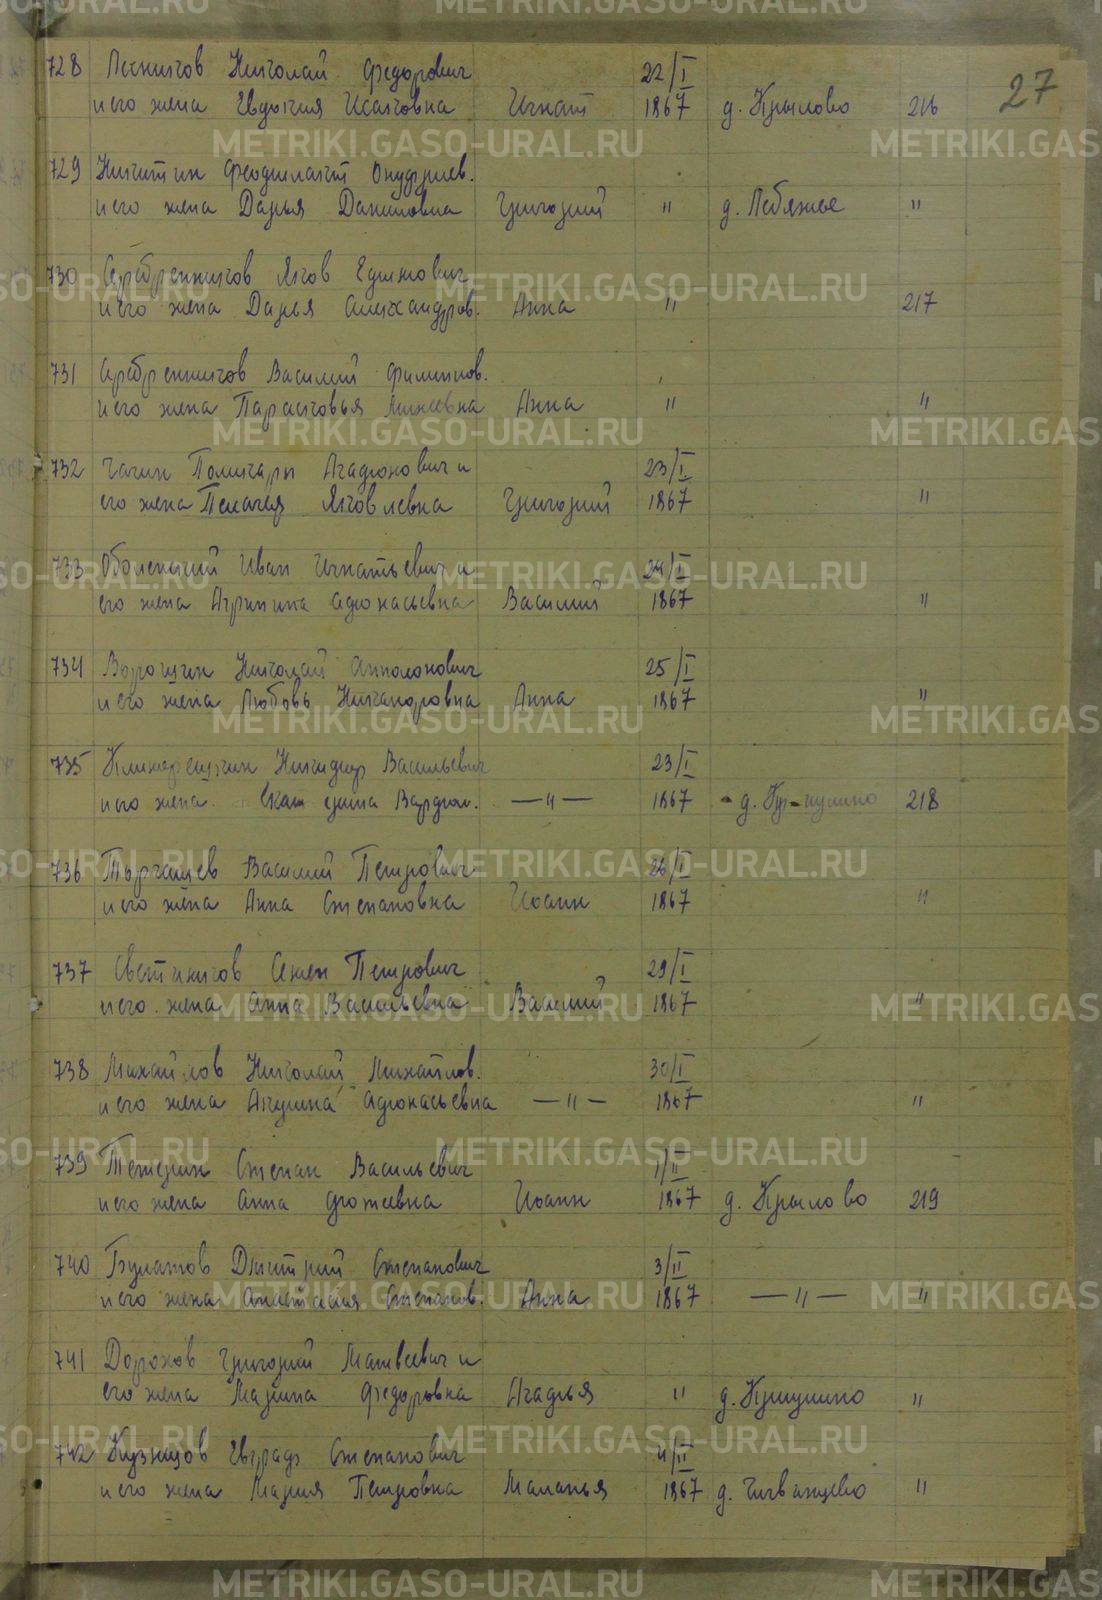 27
728 Лесников Николай Федорович 22/I
и его жена Евдокия Исаковна Игнат 1867 д. Крылово 216
729 Никитин Феофилакт Онуфриев.
и его жена Дарья Даниловна Григорий " д. Лебяжье "
730 Серебренников Яков Ефимович
и его жена Дарья Александров. Анна " 217
731 Серебренников Василий Филиппов.
и его жена Парасковья Минеевна Анна " "
732 Чагин Поликарп Агафонович и 23/I
его жена Пелагея Яковлевна Григорий 1867 "
733 Оболенский Иван Игнатьевич и 24/I
его жена Агрипина Афонасьевна Василий 1867 "
734 Ворошин Николай Апполонович 25/I
и его жена Любовь Никаноровна Анна 1867 "
735 Никифор Васильевич 23/I
и его жена Екатерина -"- 1867 д. 218
736 Торгашев Василий Петрович 26/I
и его жена Анна Степановна Иоанн 1867 "
737 Светлаков Семен Петрович 29/I
и его жена Анна Васильевна Василий 1867 "
738 Михайлов Николай Михайлов. 30/I
и его жена Акулина Афонасьевна -"- 1867 "
739 Тетерин Степан Васильевич 1/II
и его жена Анна Фотеевна Иоанн 1867 д. Крылово 219
740 Булатов Дмитрий Степанович 3/II
и его жена Анастасия Степанов. Анна 1867 -"- "
741 Дорохов Григорий Матвеевич и
его жена Марина Федоровна Агафья " д. Кришунино "
742 Кузнецов Евграф Степанович 4/II
и его жена Мария Петровна Маланья 1867 д. Чигвинцево "
METRIKI.GASO-URAL.RU